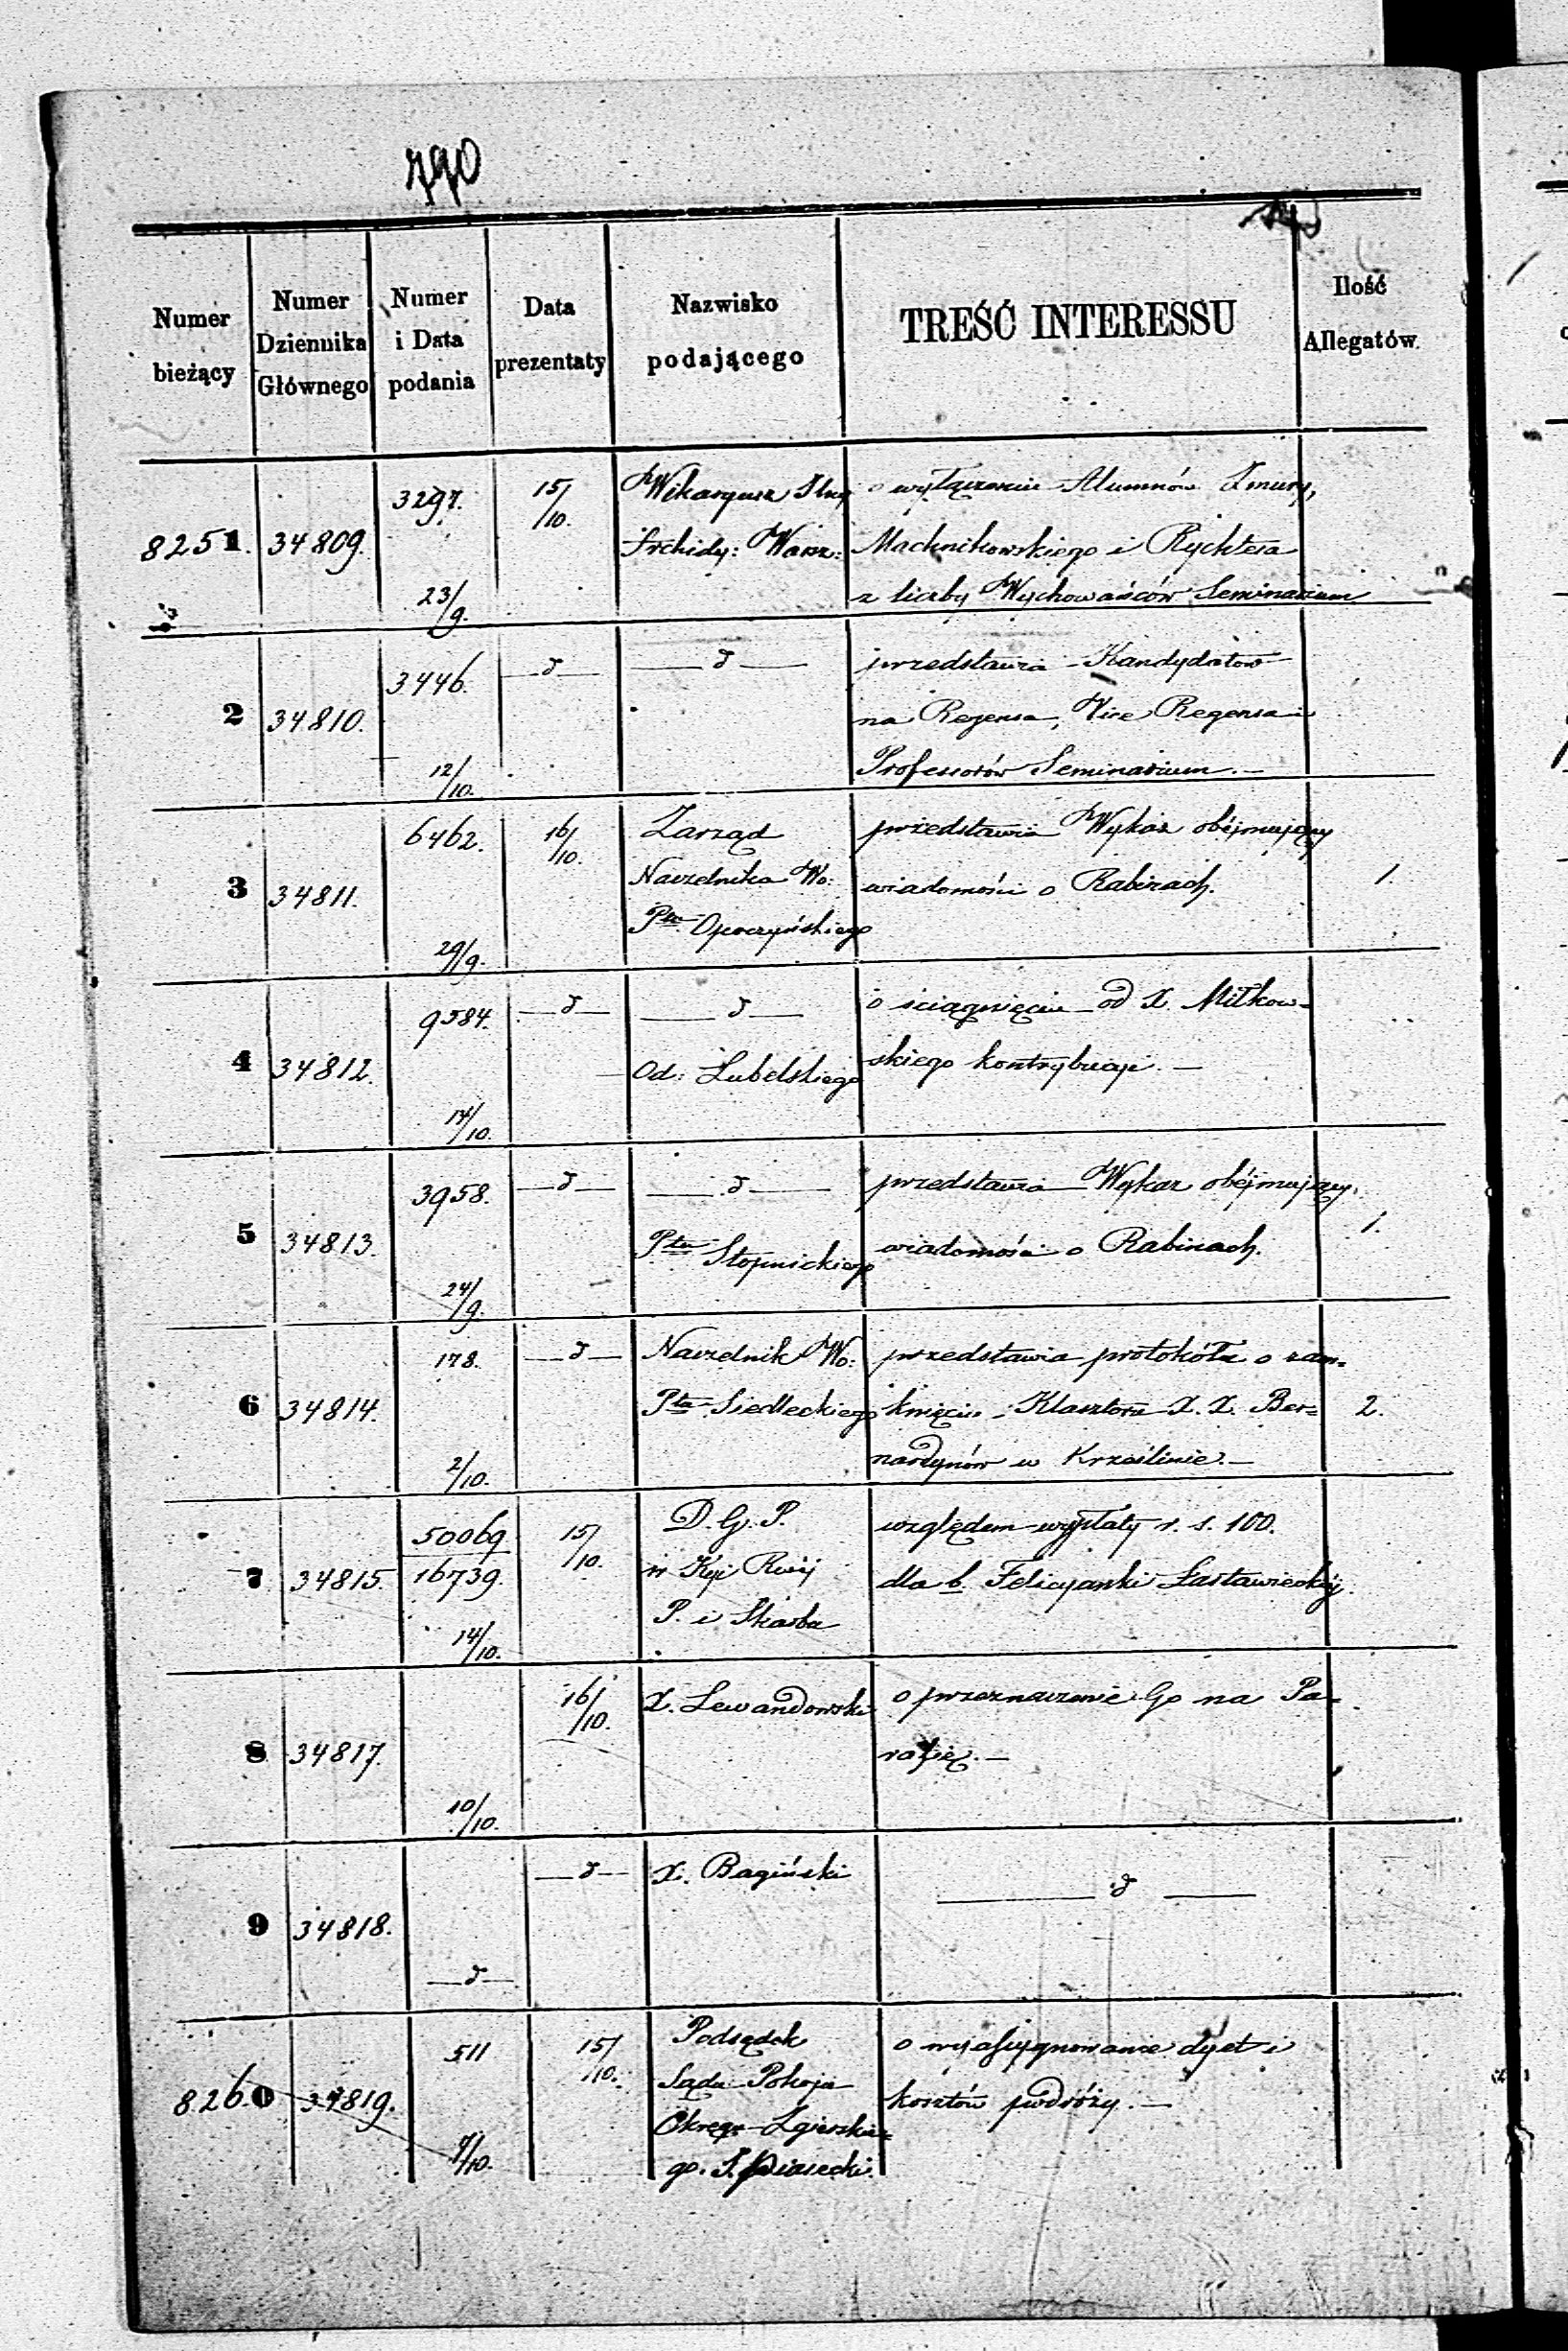 790
Numer bieżący
Numer Dziennika Głównego
Numer i Data podania
Data prezentaty
Nazwisko podającego
TREŚĆ INTERESSU
Ilość Allegatów.
8251. 34809. 3297. 23/9. 15/10.
Wikaryusz
Archidy: Warsz:
o wyłączenie Alumnów Zmury,
Machnikowskiego i Rychtera
z liczby Wychowańców Seminarium
2 34810. 3446. 12/10. —d— —d—
przedstawia Kandydatów
na Regensa, Vice Regensa i
Professorów Seminarium.—
3 34811. 6462. 29/9. 16/10.
Zarząd
Naczelnika Wo:
Ptu Opoczyńskiego
przedstawia Wykaz obejmujący
wiadomości o Rabinach.
1.
4 34812. 9584. 14/10. —d— —d—
Od: Lubelskiego
o ściągnięcie od X. Miłkow-
skiego kontrybucyi.—
5 34813. 3958. 24/9. —d— —d—
Ptu Stopnickiego
przedstawia Wykaz obejmujący
wiadomości o Rabinach.
1.
6 34814. 178. 2/10. —d—
Naczelnik Wo:
Ptu Siedleckiego
przedstawia protokóła o zam-
knięciu Klasztoru X. X. Ber-
nardynów w Krześlinie.—
2.
7 34815. 50069 16739. 14/10. 15/10.
D. G. P.
w Kyi Rwéj
P. i Skarbu
względem wypłaty r. s. 100.
dla b. Felicyanki Łastawieckiéj.
8 34817. 10/10. 16/10.
X. Lewandowski
o przeznaczenie Go na Pa-
rafię.—
9 34818. —d— —d—
X. Bagiński
—d—
8260 34819. 511 7/10. 15/10.
Podsędek
Sądu Pokoju
Okręgu Zgierskie-
go. J. Piasecki.
o wyasygnowanie dyet i
kosztów podróży.—